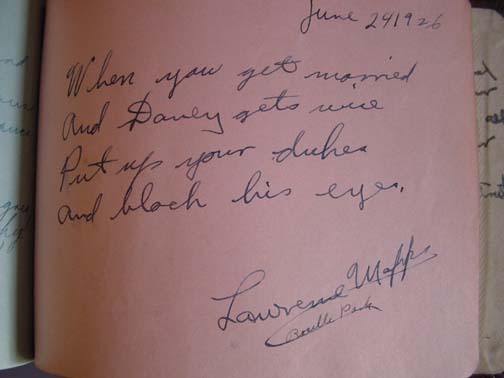 June 24 1926
When you get married
And Davey gets wise
Put up your dukes
and black his eyes.
Lawrence Mapps
Park